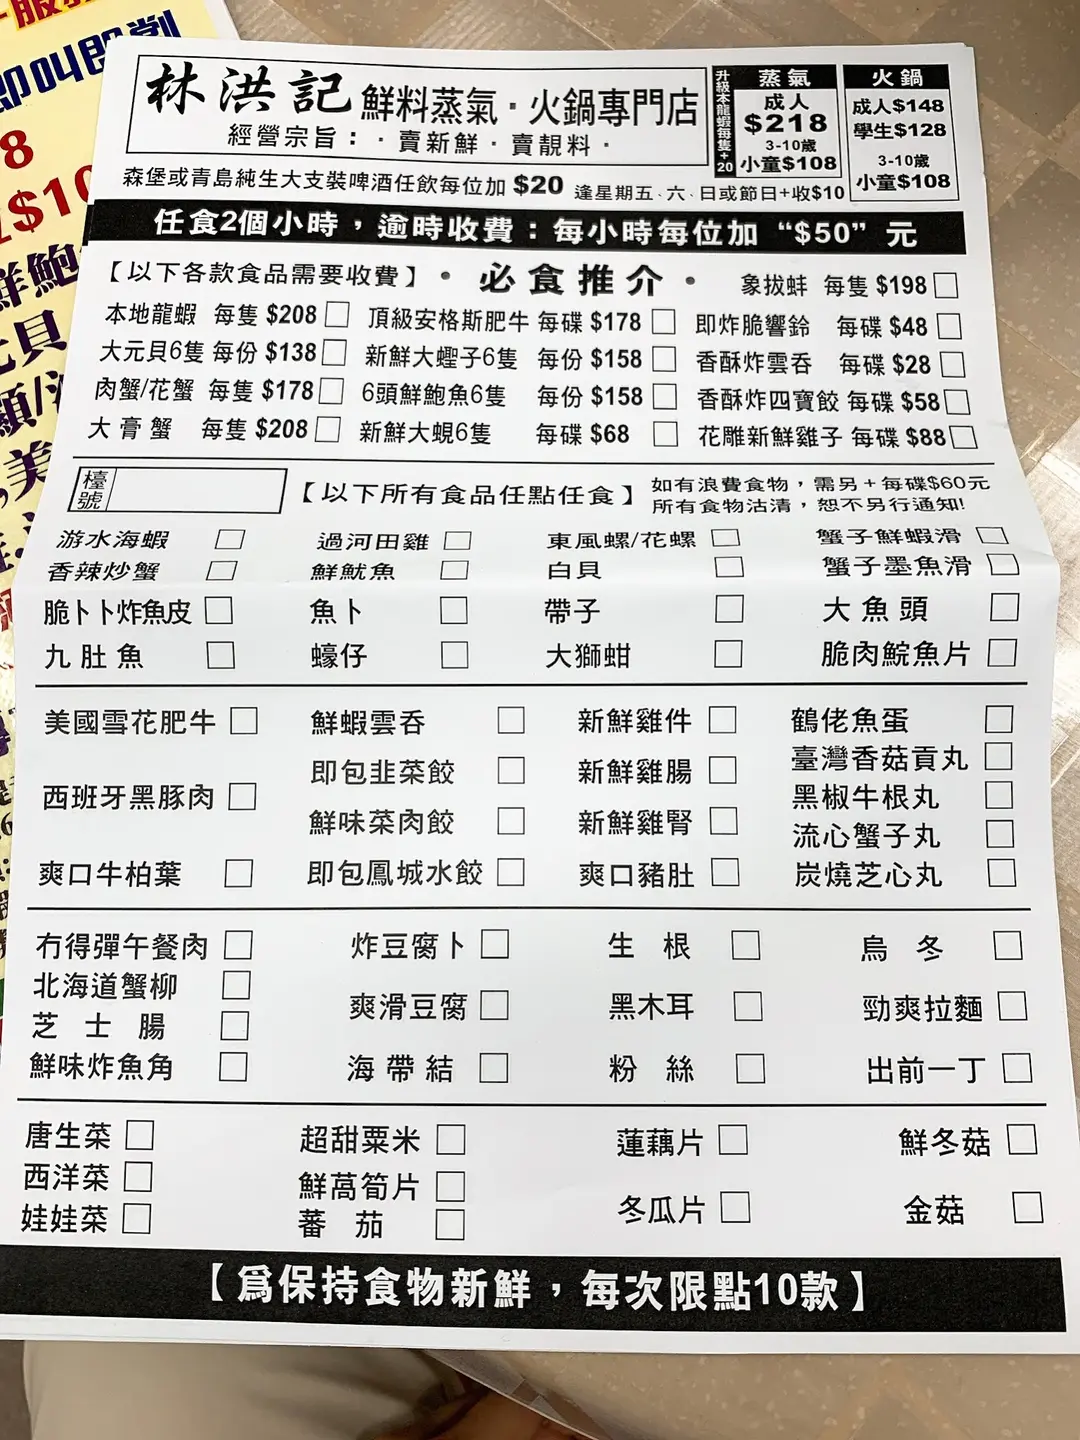 林洪記 鮮料蒸氣·火鍋專門店
經營宗旨：·賣新鮮·賣靚料·
升級本龍蝦每隻+20
蒸氣
成人
$218
3-10歲
小童$108
火鍋
成人$148
學生$128
3-10歲
小童$108
森堡或青島純生大支裝啤酒任飲每位加 $20 逢星期五、六、日或節日+收$10
任食2個小時，逾時收費：每小時每位加 “$50” 元
【以下各款食品需要收費】·必食推介· 象拔蚌 每隻 $198
本地龍蝦 每隻 $208 頂級安格斯肥牛 每碟 $178 即炸脆響鈴 每碟 $48
大元貝6隻 每份 $138 新鮮大蟶子6隻 每份 $158 香酥炸雲吞 每碟 $28
肉蟹/花蟹 每隻 $178 6頭鮮鮑魚6隻 每份 $158 香酥炸四寶餃 每碟 $58
大膏蟹 每隻 $208 新鮮大蜆6隻 每碟 $68 花雕新鮮雞子 每碟 $88
檯號 【以下所有食品任點任食】 如有浪費食物，需另+每碟$60元
所有食物沽清，恕不另行通知!
游水海蝦 過河田雞 東風螺/花螺 蟹子鮮蝦滑
香辣炒蟹 鮮魷魚 白貝 蟹子墨魚滑
脆卜卜炸魚皮 魚卜 帶子 大魚頭
九肚魚 蠔仔 大獅蚶 脆肉鯇魚片
美國雪花肥牛 鮮蝦雲吞 新鮮雞件 鶴佬魚蛋
即包韭菜餃 新鮮雞腸 臺灣香菇貢丸
西班牙黑豚肉 黑椒牛根丸
鮮味菜肉餃 新鮮雞腎 流心蟹子丸
爽口牛柏葉 即包鳳城水餃 爽口豬肚 炭燒芝心丸
冇得彈午餐肉 炸豆腐卜 生根 烏冬
北海道蟹柳 爽滑豆腐 黑木耳 勁爽拉麵
芝士腸
鮮味炸魚角 海帶結 粉絲 出前一丁
唐生菜 超甜粟米 蓮藕片 鮮冬菇
西洋菜 鮮萵筍片
娃娃菜 蕃茄 冬瓜片 金菇
【爲保持食物新鮮，每次限點10款】